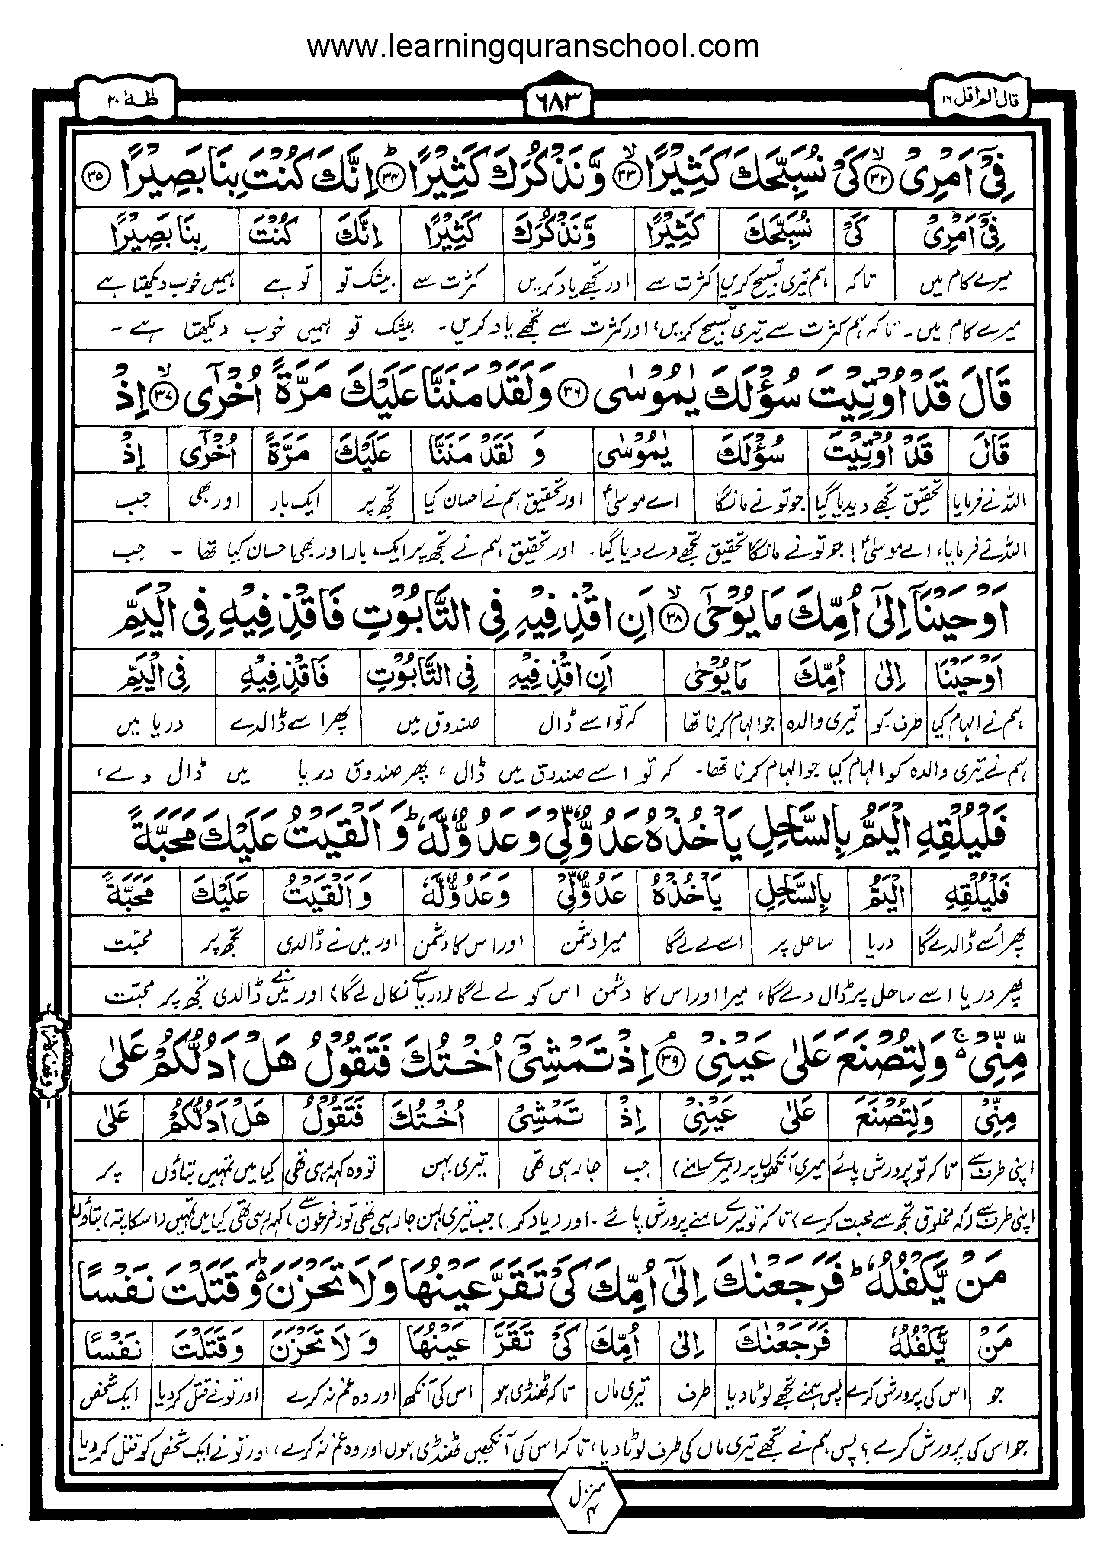 www.learningquranschool.com
قال الم اقل ١٦
٦٨٣
طٰهٰ ٢٠
فِیْۤ اَمْرِیْ ﴿٣٢﴾ کَیْ نُسَبِّحَکَ کَثِیْرًا ﴿٣٣﴾ وَّنَذْکُرَکَ کَثِیْرًا ﴿٣٤﴾ اِنَّکَ کُنْتَ بِنَا بَصِیْرًا ﴿٣٥﴾
فِیْۤ اَمْرِیْ کَیْ نُسَبِّحَکَ کَثِیْرًا وَّنَذْکُرَکَ کَثِیْرًا اِنَّکَ کُنْتَ بِنَا بَصِیْرًا
میرے کام میں تاکہ ہم تیری تسبیح کریں کثرت سے اور تجھے یاد کریں کثرت سے بیشک تو تو ہے ہمیں خوب دیکھتا ہے
میرے کام میں۔ تاکہ ہم کثرت سے تیری تسبیح کریں، اور کثرت سے تجھے یاد کریں۔ بیشک تو ہمیں خوب دیکھتا ہے۔
قَالَ قَدْ اُوْتِیْتَ سُؤْلَکَ یٰمُوْسٰی ﴿٣٦﴾ وَلَقَدْ مَنَنَّا عَلَیْکَ مَرَّةً اُخْرٰۤی ﴿٣٧﴾ اِذْ
قَالَ قَدْ اُوْتِیْتَ سُؤْلَکَ یٰمُوْسٰی وَ لَقَدْ مَنَنَّا عَلَیْکَ مَرَّةً اُخْرٰۤی اِذْ
اللہ نے فرمایا تحقیق تجھے دیدیا گیا جو تو نے مانگا اے موسیٰؑ اور تحقیق ہم نے احسان کیا تجھ پر ایک بار اور بھی جب
اللہ نے فرمایا، اے موسیٰؑ! جو تو نے مانگا تحقیق تجھے دے دیا گیا۔ اور تحقیق ہم نے تجھ پر ایک بار اور بھی احسان کیا تھا ۔ جب
اَوْحَیْنَاۤ اِلٰۤی اُمِّکَ مَا یُوْحٰۤی ﴿٣٨﴾ اَنِ اقْذِفِیْهِ فِی التَّابُوْتِ فَاقْذِفِیْهِ فِی الْیَمِّ
اَوْحَیْنَا اِلٰی اُمِّکَ مَا یُوْحٰی اَنِ اقْذِفِیْهِ فِی التَّابُوْتِ فَاقْذِفِیْهِ فِی الْیَمِّ
ہم نے الہام کیا طرف کو تیری والدہ جو الہام کرنا تھا کہ تو اسے ڈال صندوق میں پھر اسے ڈالدے دریا میں
ہم نے تیری والدہ کو الہام کیا جو الہام کرنا تھا۔ کہ تو اسے صندوق میں ڈال، پھر صندوق دریا میں ڈال دے،
فَلْیُلْقِهِ الْیَمُّ بِالسَّاحِلِ یَاْخُذْهُ عَدُوٌّ لِّیْ وَعَدُوٌّ لَّهٗ ؕ وَاَلْقَیْتُ عَلَیْکَ مَحَبَّةً
فَلْیُلْقِهِ الْیَمُّ بِالسَّاحِلِ یَاْخُذْهُ عَدُوٌّ لِّیْ وَعَدُوٌّ لَّهٗ وَاَلْقَیْتُ عَلَیْکَ مَحَبَّةً
پھر اُسے ڈالدے گا دریا ساحل پر اسے لے لے گا میرا دشمن اور اس کا دشمن اور میں نے ڈالدی تجھ پر محبت
پھر دریا اسے ساحل پر ڈال دے گا، میرا اور اس کا دشمن اس کو لے لے گا (دریا سے نکال لے گا) اور میں نے ڈالدی تجھ پر محبت
مِّنِّیْ ۚ وَلِتُصْنَعَ عَلٰی عَیْنِیْ ﴿٣٩﴾ اِذْ تَمْشِیْۤ اُخْتُکَ فَتَقُوْلُ هَلْ اَدُلُّکُمْ عَلٰی
مِنِّیْ وَلِتُصْنَعَ عَلٰی عَیْنِیْ اِذْ تَمْشِیْ اُخْتُکَ فَتَقُوْلُ هَلْ اَدُلُّکُمْ عَلٰی
اپنی طرف سے تاکہ تو پرورش پائے میری آنکھوں پر (میرے سامنے) جب جا رہی تھی تیری بہن تو وہ کہہ رہی تھی کیا میں تمہیں بتاؤں پر
اپنی طرف سے (کہ مخلوق تجھ سے محبت کرے) تاکہ تو میرے سامنے پرورش پائے۔ اور (یاد کر) جب تیری بہن جا رہی تھی تو (فرعون سے) کہہ رہی تھی کیا میں تمہیں (اس کا پتہ) بتاؤں
مَنْ یَّکْفُلُهٗ ؕ فَرَجَعْنٰکَ اِلٰۤی اُمِّکَ کَیْ تَقَرَّ عَیْنُهَا وَلَا تَحْزَنَ ؕ۬ وَقَتَلْتَ نَفْسًا
مَنْ یَّکْفُلُهٗ فَرَجَعْنٰکَ اِلٰی اُمِّکَ کَیْ تَقَرَّ عَیْنُهَا وَ لَا تَحْزَنَ وَقَتَلْتَ نَفْسًا
جو اس کی پرورش کرے پس ہم نے تجھے لوٹا دیا طرف تیری ماں تاکہ ٹھنڈی ہو اس کی آنکھ اور وہ غم نہ کرے اور تو نے قتل کر دیا ایک شخص
جو اس کی پرورش کرے؟ پس ہم نے تجھے تیری ماں کی طرف لوٹا دیا، تاکہ اس کی آنکھیں ٹھنڈی ہوں اور وہ غم نہ کرے، اور تو نے ایک شخص کو قتل کر دیا
منزل ٤